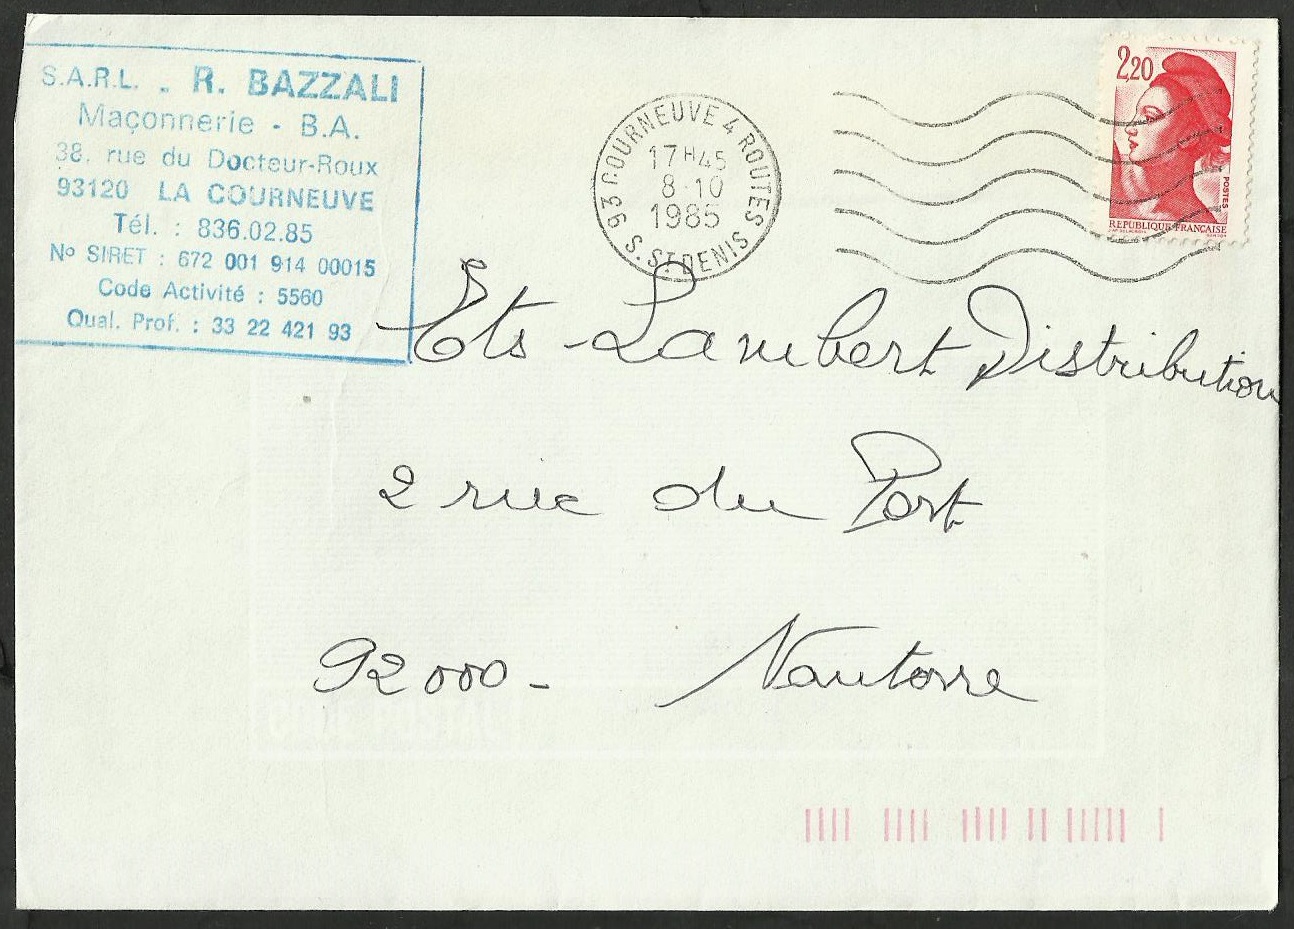 S.A.R.L. - R. BAZZALI
Maçonnerie - B.A.
38, rue du Docteur-Roux
93120 LA COURNEUVE
Tél. : 836.02.85
Nº SIRET : 672 001 914 00015
Code Activité : 5560
Qual. Prof. : 33 22 421 93
93 COURNEUVE 4 ROUTES
17H45
8-10
1985
S. ST DENIS
2,20
POSTES
REPUBLIQUE FRANÇAISE
Ets Lambert Distribution
2 rue du Port
92000 - Nanterre
CODE POSTAL